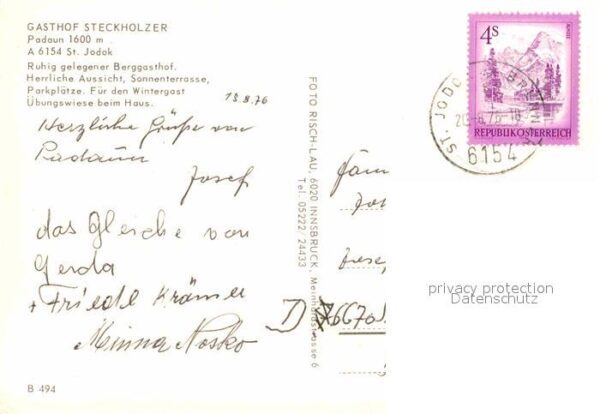 GASTHOF STECKHOLZER
Padaun 1600 m
A 6154 St. Jodok
Ruhig gelegener Berggasthof.
Herrliche Aussicht, Sonnenterrasse,
Parkplätze. Für den Wintergast
Übungswiese beim Haus.
18.8.76
Herzliche Grüße von
Padaun
Josef
das Gleiche von
Gerda
+ Friedl Krämer
Minna Nosko
B 494
FOTO RISCH-LAU, 6020 INNSBRUCK, Meinhardstrasse 6
Tel. 05222/24433
4S
REPUBLIK ÖSTERREICH
ST. JODOK
6154
Fam
D 6670
privacy protection
Datenschutz